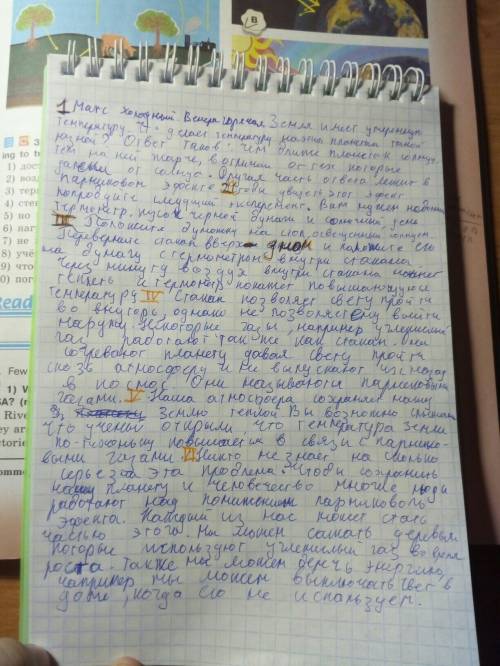 B
1 Марс холодный Венера горячая Земля имеет умеренную
температуру. Что делает температуру на этих планетах такой
разной? Ответ таков: чем ближе планета к солнцу,
тем на ней жарче, в отличии от тех которые
далеки от солнца. Другая часть ответа лежит в
парниковом эффекте. II Чтобы увидеть этот эффект
попробуйте следущий эксперемент. Вам нужен
термометр, кусок черной бумаги и солнечный день
III Положите бумажку на стол, освещенный солнцем.
Переверните стакан вверх дном и положите его
на бумагу с термометром внутри стакана.
Через минуту воздух внутри стакана начнет
теплеть и термометр покажет повышающуюся
температуру IV Стакан позволяет свету пройти
во внутрь, однако не позволяет ему выйти
наружу. Некоторые газы, например углекислый
газ, работают так же как стакан. Они
согревают планету давая свету пройти
сквозь атмосферу и не выпускают их назад
в космос. Они называются парниковыми
газами. V Наша атмосфера сохраняет нашу
Землю теплой Вы возможно слышали
что ученые открыли что температура Земли
по-тихоньку повышается в связи с парнико-
выми газами. VI Никто не знает на сколько
серьезна эта проблема. Чтобы сохранить
нашу планету и человечество многие люди
работают над понижением парникового
эффекта. Каждый из нас может стать
частью этого. Мы можем сажать деревья
которые используют углекислый газ во время
роста. Также мы можем беречь энергию,
например мы можем выключать свет в
доме, когда его не используем.